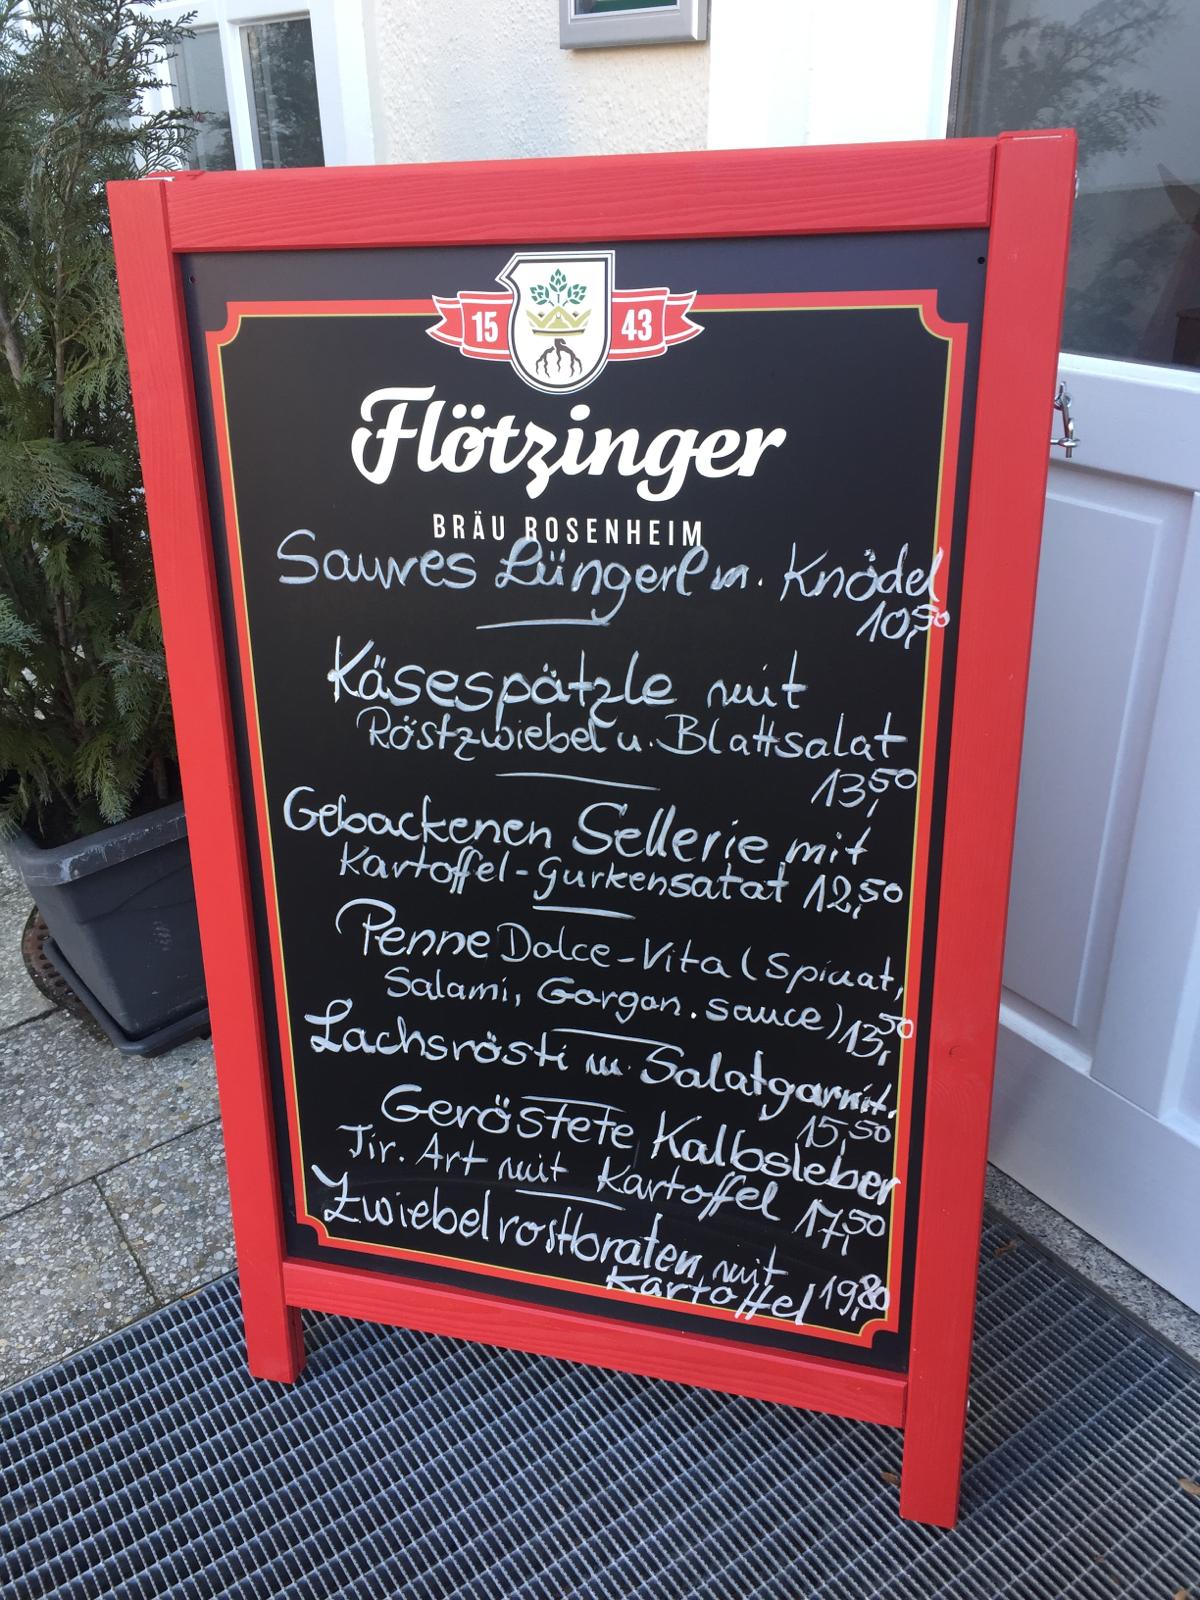 15 43
Flötzinger
BRÄU ROSENHEIM
Saures Lüngerl m. Knödel
10,50
Käsespätzle mit
Röstzwiebel u. Blattsalat
13,50
Gebackenen Sellerie mit
Kartoffel-Gurkensalat 12,50
Penne Dolce-Vita (Spinat,
Salami, Gorgon. sauce) 13,50
Lachsrösti m. Salatgarnit.
15,50
Geröstete Kalbsleber
Tir. Art mit Kartoffel 17,50
Zwiebelrostbraten mit
Kartoffel 19,80